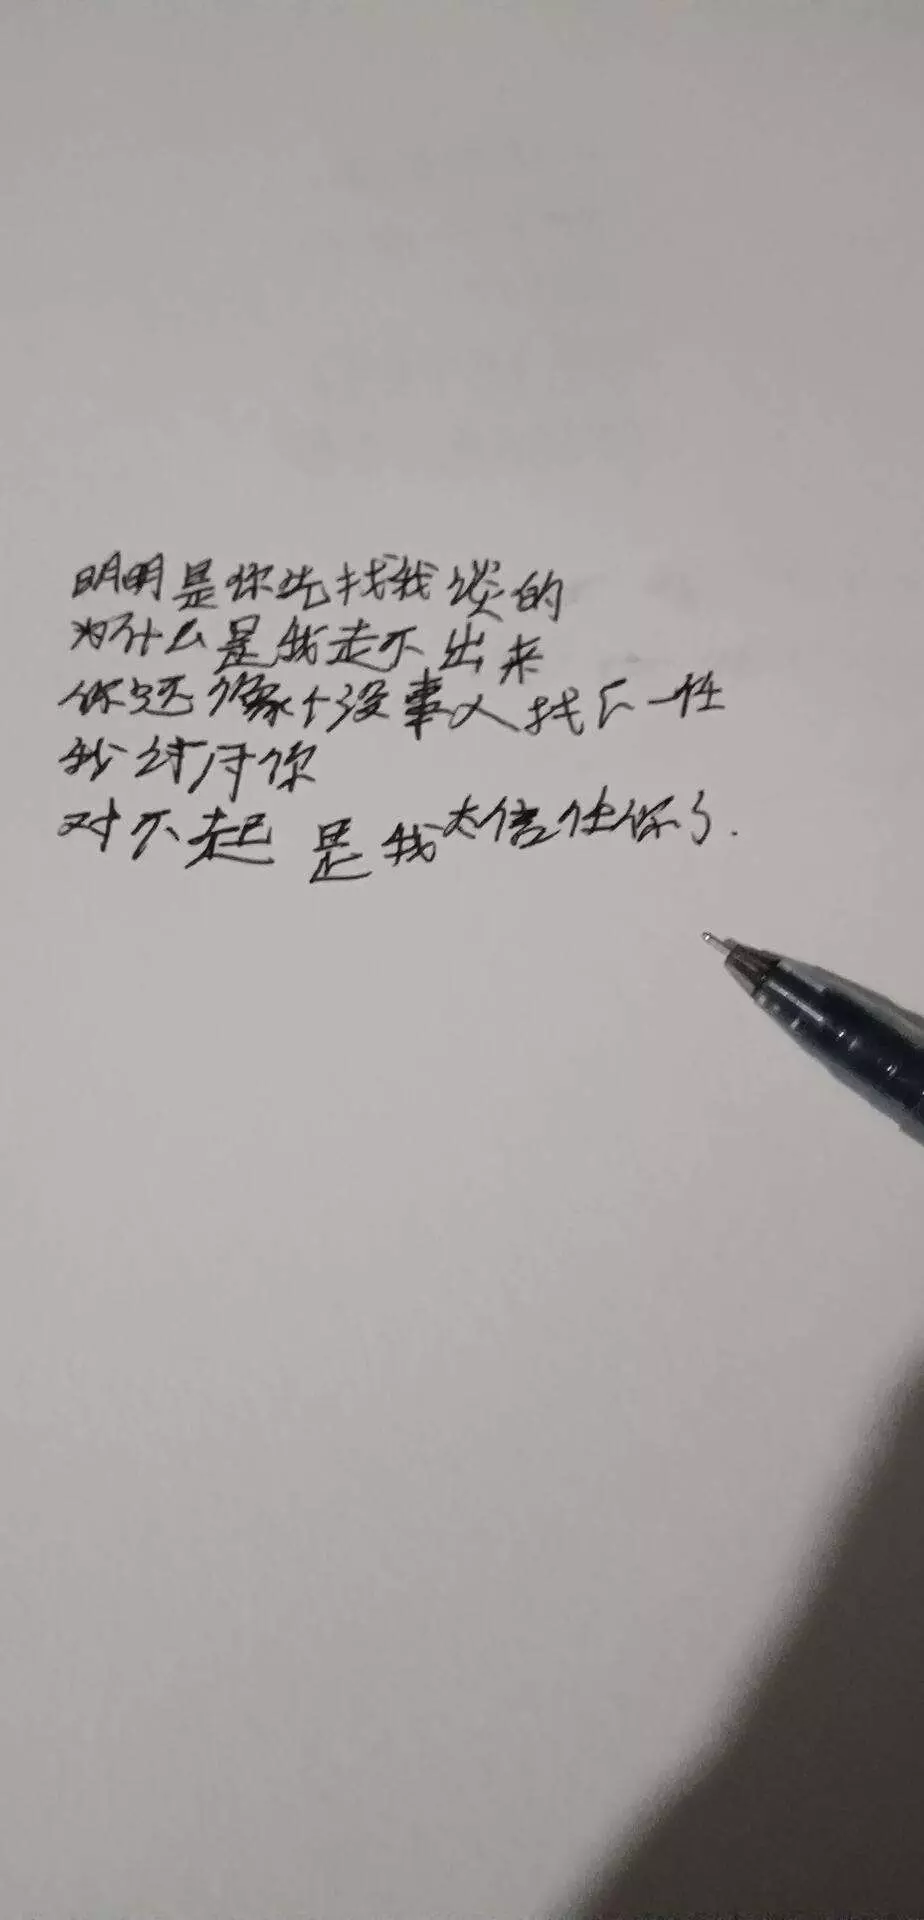 明明是你先找我谈的
为什么是我走不出来
你还像个没事人找下一任
我讨厌你
对不起 是我太信任你了.